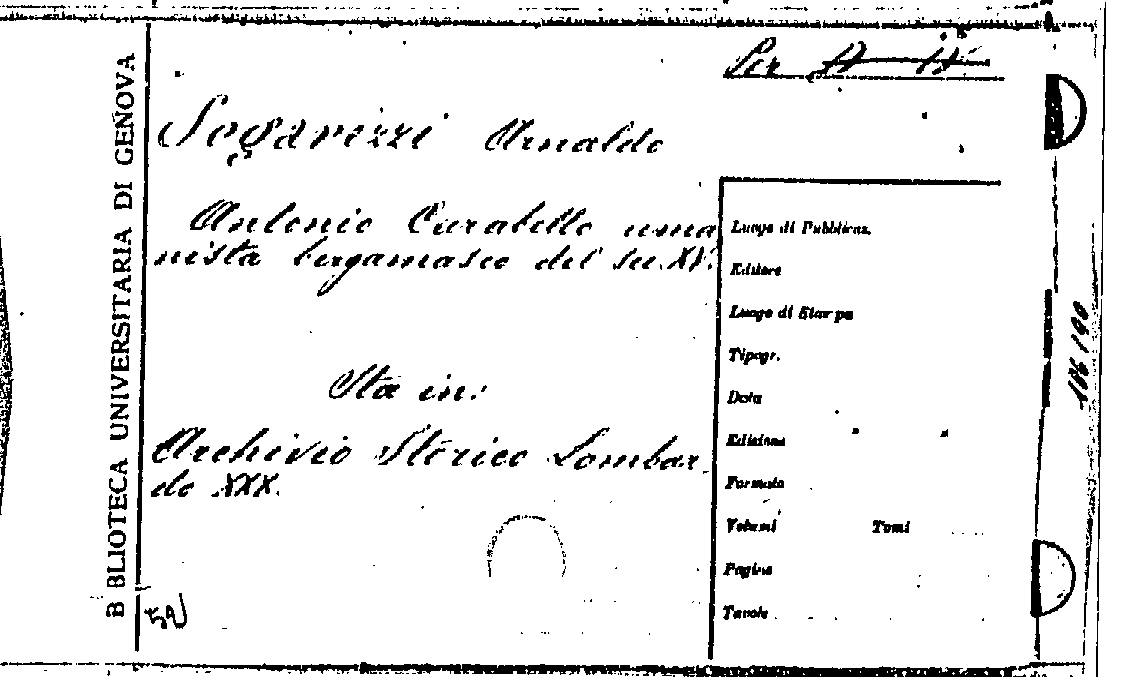 BIBLIOTECA UNIVERSITARIA DI GENOVA
Per
Segarizzi Arnaldo
Antonio Carabello uma
nista bergamasco del sec. XV.
Sta in:
Archivio Storico Lombar
do XXX.
Luogo di Pubblicaz.
Editore
Luogo di Stampa
Tipogr.
Data
Edizione
Formato
Volumi Tomi
Pagine
Tavole